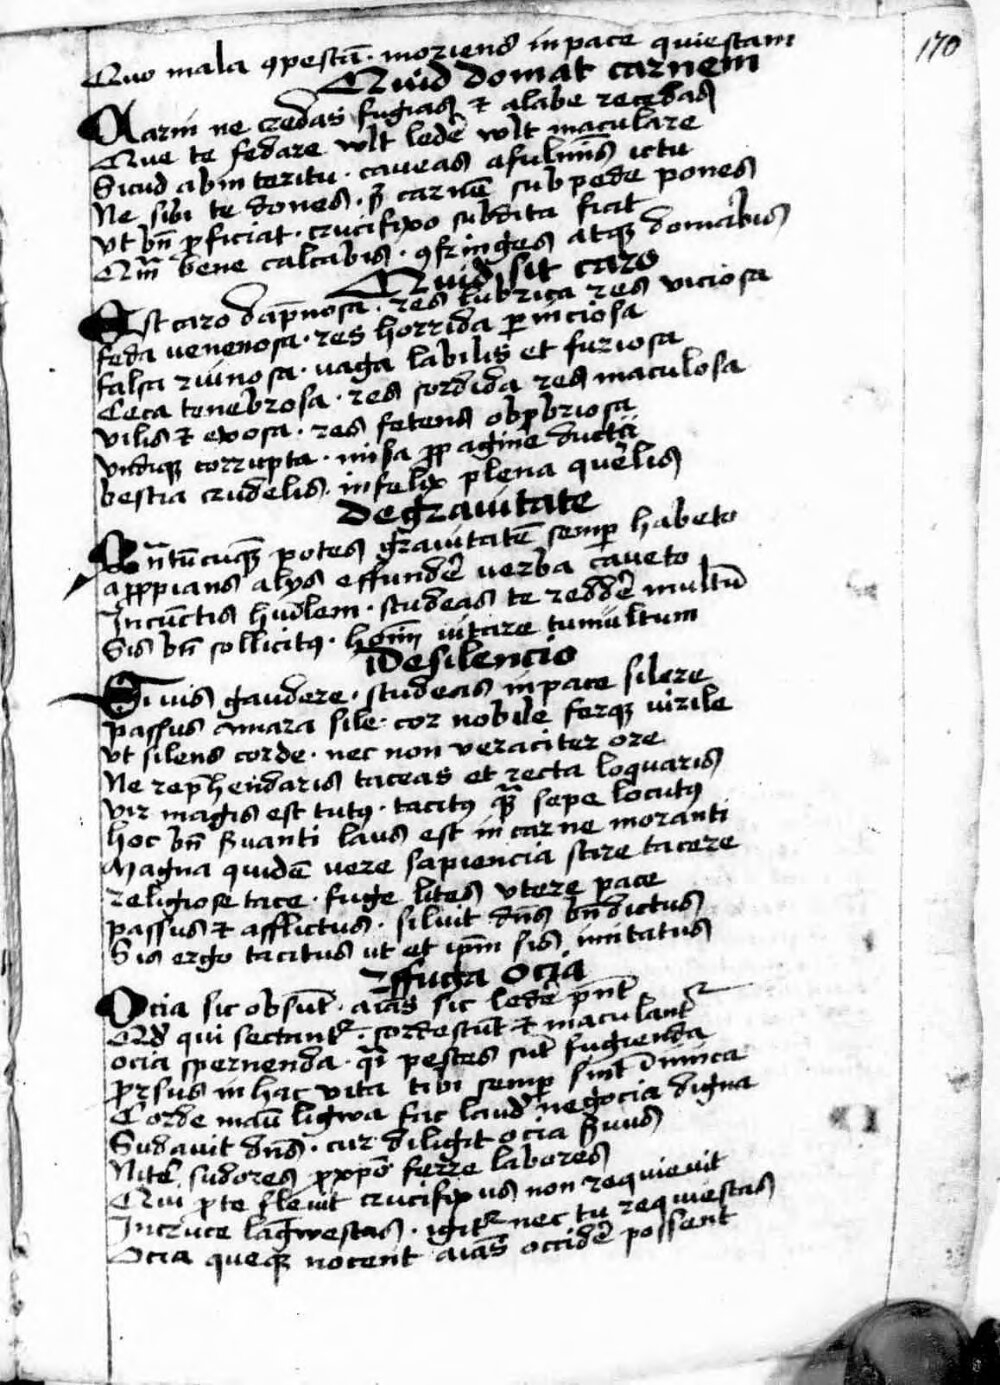 170
Quo mala 9pescā · moriens in pace quiescam
Quid domat carnem
Carni ne credas fugias et a labe recedas
Que te fedare wlt ledē wlt maculare
Sicud ab interitu · caveas a fulmīs ictu
Ne sibi te dones · s carnē sub pede pones
Vt bn̄ pficiat · crucifixo subdita fiat
Qm̄ bene calcabis · 9fringes atqꝫ domabis
Quid sit caro
Est caro dāpnosa · res lubrica res viciosa
feda venenosa · res horrida pniciosa
falsa ruinosa · vaga labilis et furiosa
Ceca tenebrosa · res sordida res maculosa
vilis et exosa · res fetens obpbriosa
vndiqꝫ corrupta · misa ppagine ducta
bestia crudelis · infelix plena querelis
De gravitate
Qn̄tūcūqꝫ potes gravitatē semp habeto
appians alijs effundē verba caveto
In cūctis hūilem · studeas te reddē multū
Sis bn̄ sollicitꝰ · hoīm vitare tumultum
De silencio
Si vis gaudere · studeas in pace silere
passus amara sile · cor nobile ferqꝫ virile
Vt silens corde · nec non veraciter ore
Ne rephendaris taceas et recta loquaris
Vir magis est tutꝰ · tacitꝰ qm̄ sepe locutꝰ
hoc bn̄ suanti laus est in carne moranti
Magna quidē vere sapiencia scire tacere
religiose tace · fuge lites vtere pace
passus et afflictus · siluit dn̄s bn̄dictus
Sis ergo tacitus ut et ipm̄ sis imitatus
Effuga ocia
Ocia sic obsūt · aīas sic ledē pn̄t
Qd qui sectantr · sordescūt et maculantr
ocia spernenda · qi pestes sūt fugienda
prsus in hac vita tibi semp sint inimica
Corde manū ligwa fac laudē negocia digna
Sudavit dn̄s · cur diligit ocia suus
Nite sudores p xpō ferre labores
Qui p te flevit crucifixus non requievit
In cruce lāgwescas · igitr nec tu requiescas
Ocia queqꝫ nocent aīas occidē possent